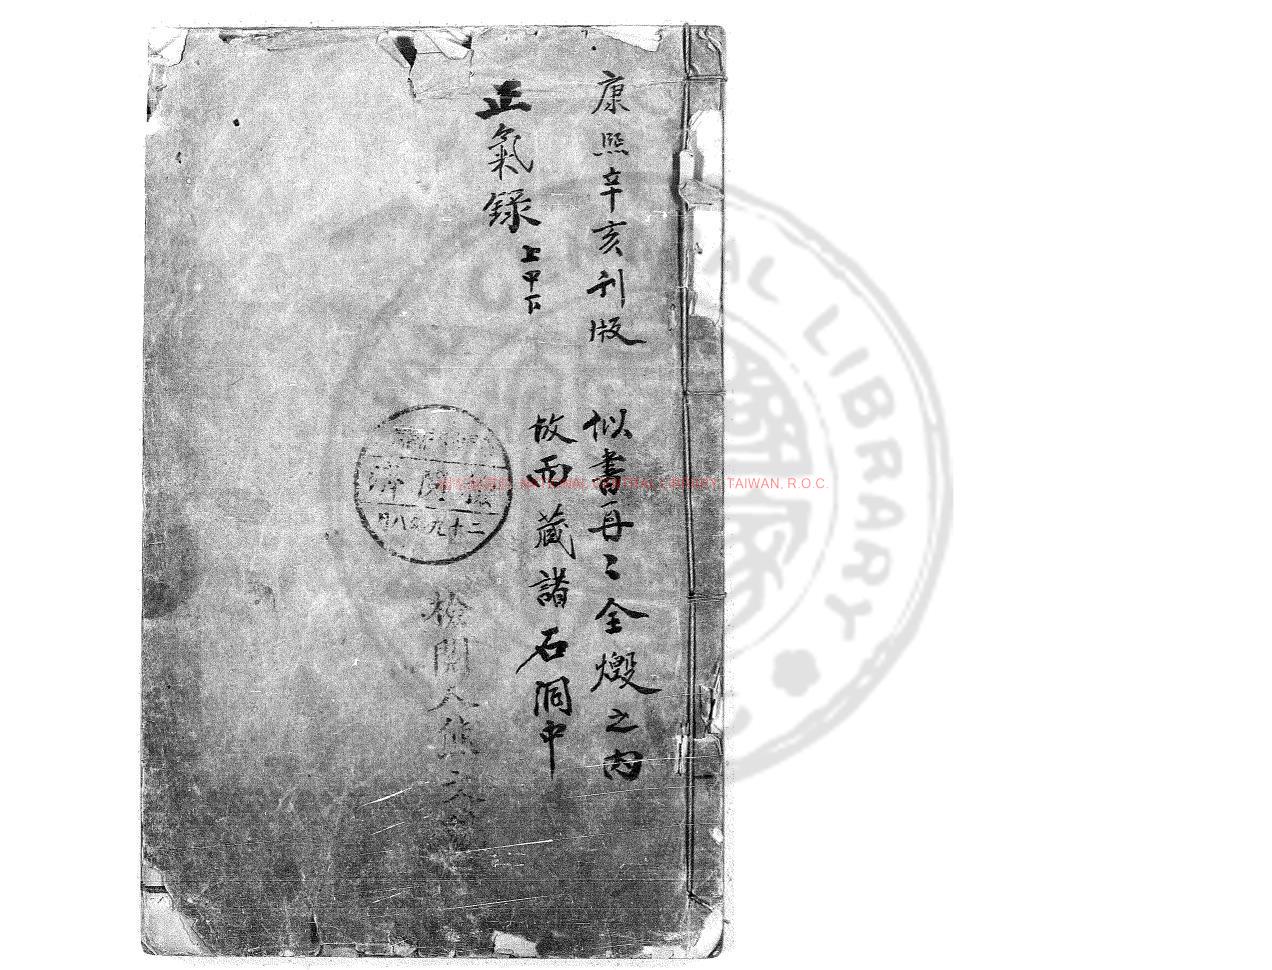 康熙辛亥刊版
似書再〻全燬之内
正氣録
上中下
故而藏諸石洞中
二十九年八月
檢閱人熊
NATIONAL CENTRAL LIBRARY, TAIWAN, R.O.C.